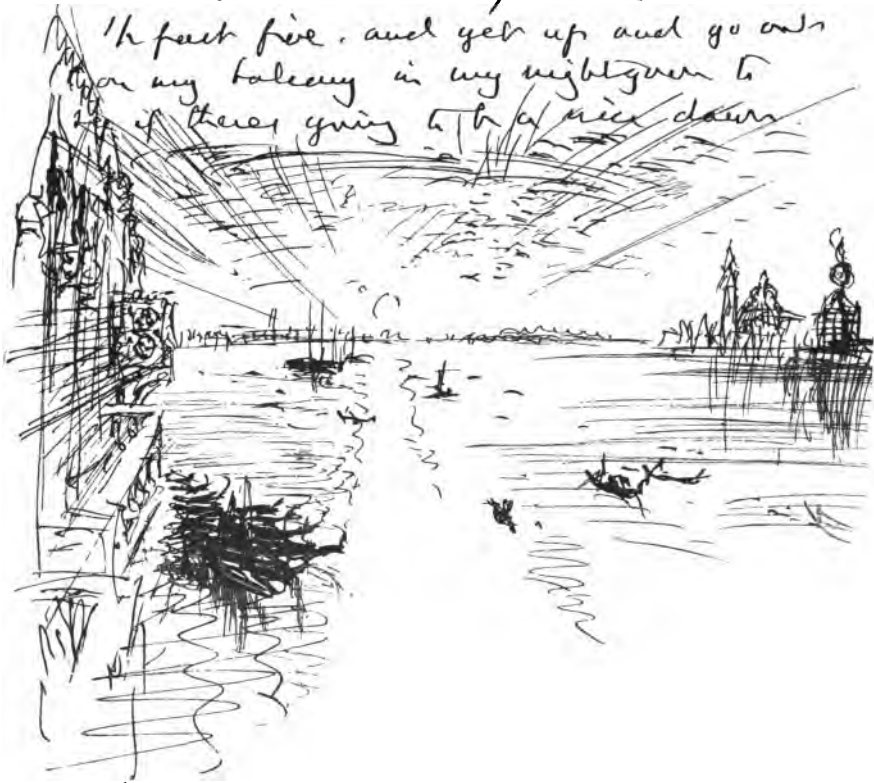 1/2 past five. and get up and go out
on my balcony in my nightgown to
see if there's going to be a nice dawn.